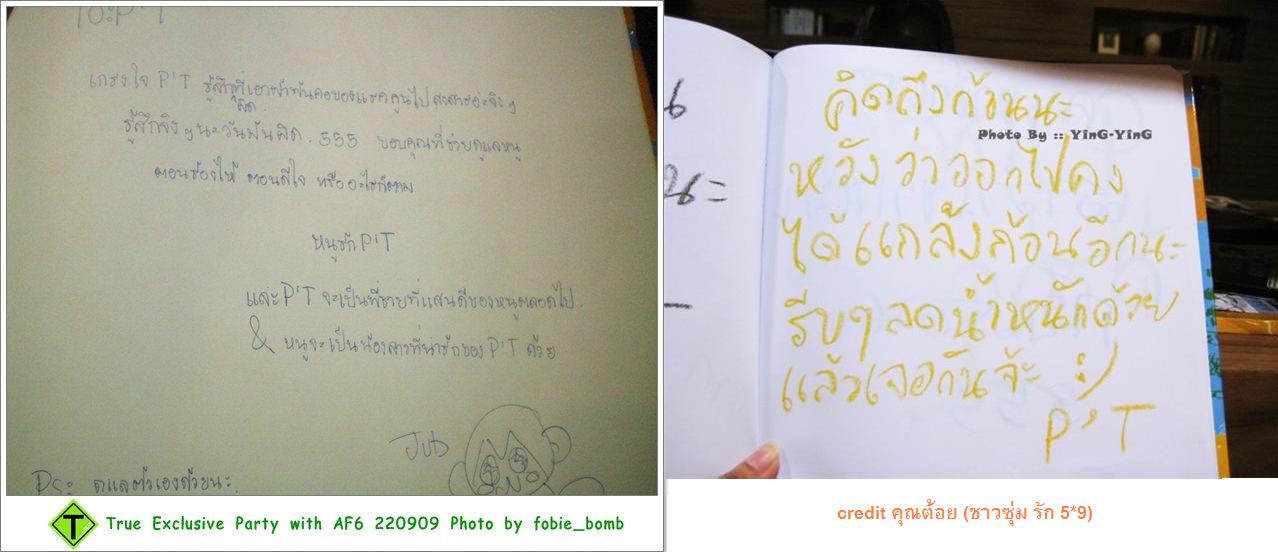 To: P'T
เกรงใจ P'T รู้สึกที่เอาผ้าพันคอของแรคคูนไป สงสารอ่ะจริงๆ
ผิด
รู้สึกจริงๆนะ วันมันผิด. 555 ขอบคุณที่ช่วยดูแลหนู
ตอนร้องไห้ ตอนดีใจ หรืออะไรก็ตาม
หนูรัก P'T
และ P'T จะเป็นพี่ชายที่แสนดีของหนูตลอดไป
& หนูจะเป็นน้องสาวที่น่ารักของ P'T ด้วย
Jub
Ps: ดูแลตัวเองด้วยนะ
True Exclusive Party with AF6 220909 Photo by fobie_bomb
T
น
นะ
คิดถึงก้อนนะ
Photo By :: YinG-YinG
หวังว่าออกไปคง
ได้แกล้งก้อนอีกนะ
รีบๆลดน้ำหนักด้วย
แล้วเจอกันจ้ะ :)
P'T
credit คุณต้อย (ชาวซุ่ม รัก 5*9)